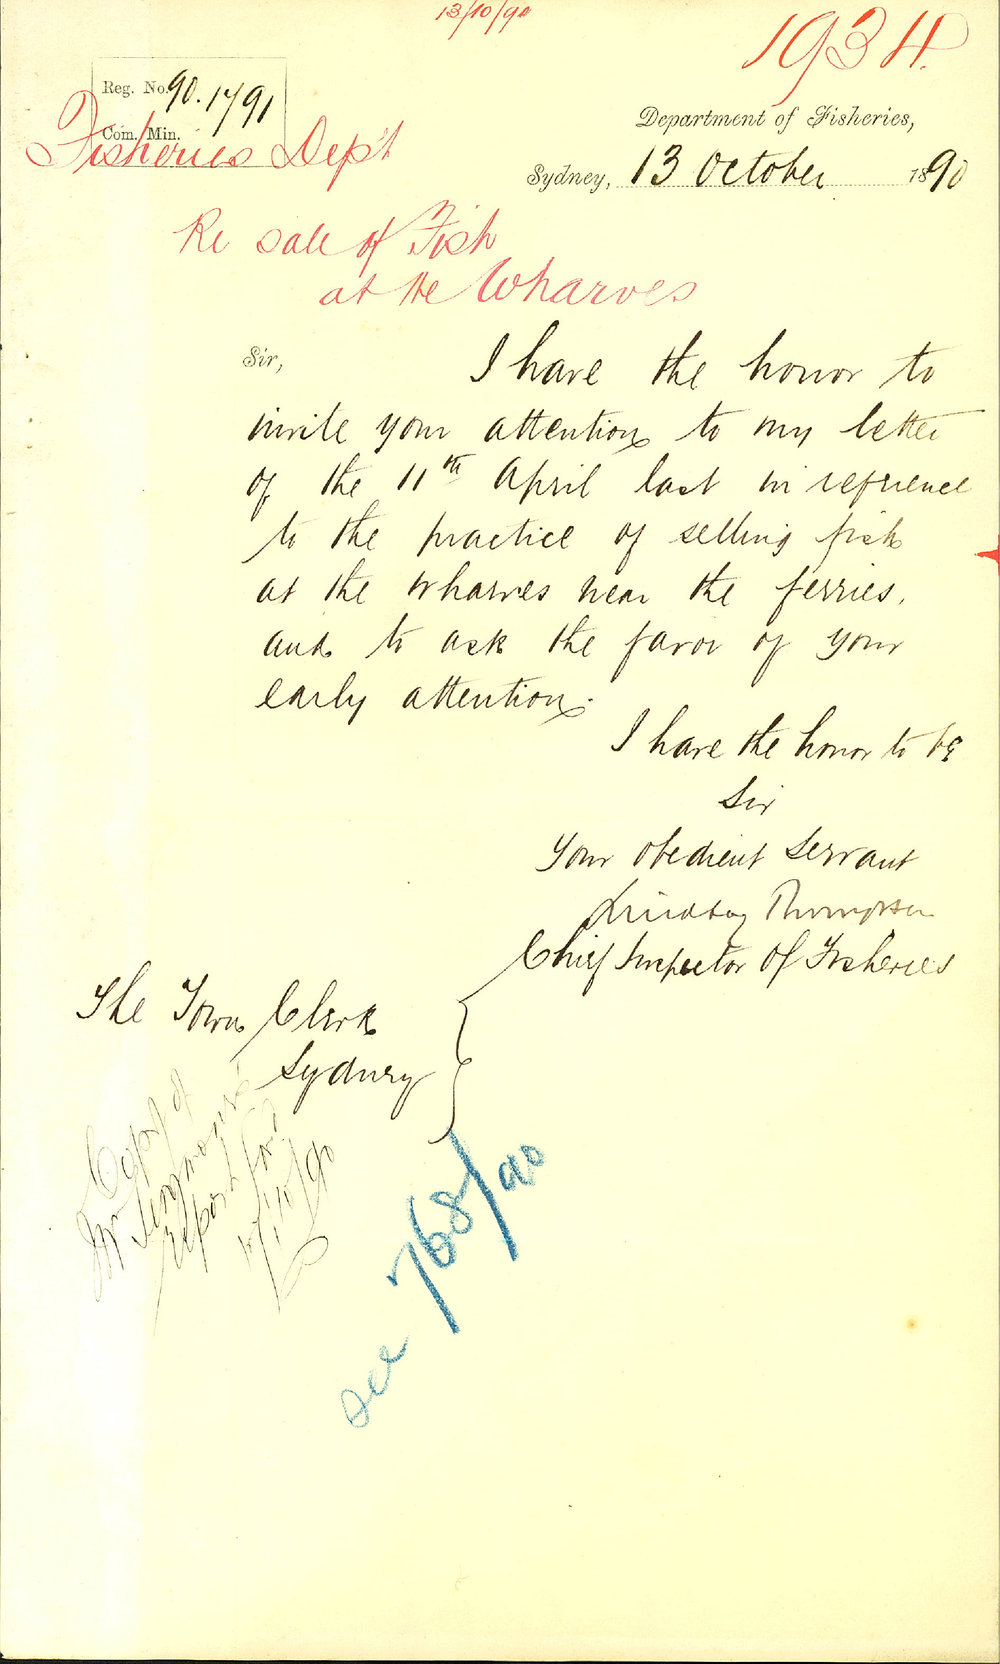 13/10/90
1934.
Reg. No. 90.1791
Com. Min.
Fisheries Dep't
Department of Fisheries,
Sydney, 13 October 1890
Re sale of Fish
at the Wharves
Sir,
I have the honor to
invite your attention to my letter
of the 11th April last in reference
to the practice of selling fish
at the wharves near the ferries,
and to ask the favor of your
early attention.
I have the honor to be
Sir
Your obedient Servant
Lindsay Thompson
Chief Inspector of Fisheries
The Town Clerk
Sydney
Copy of
Mr Seymour's
report
/11/90
see 768/90